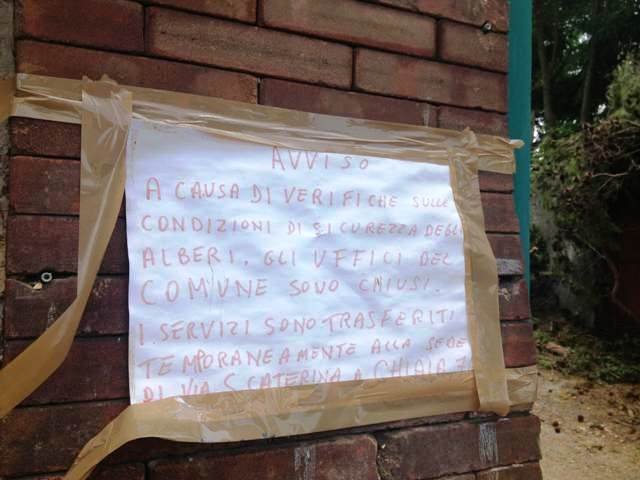 AVVISO
A CAUSA DI VERIFICHE SULLE
CONDIZIONI DI SICUREZZA DEGLI
ALBERI, GLI UFFICI DEL
COMUNE SONO CHIUSI.
I SERVIZI SONO TRASFERITI
TEMPORANEAMENTE ALLA SEDE
DI VIA S CATERINA A CHIAIA